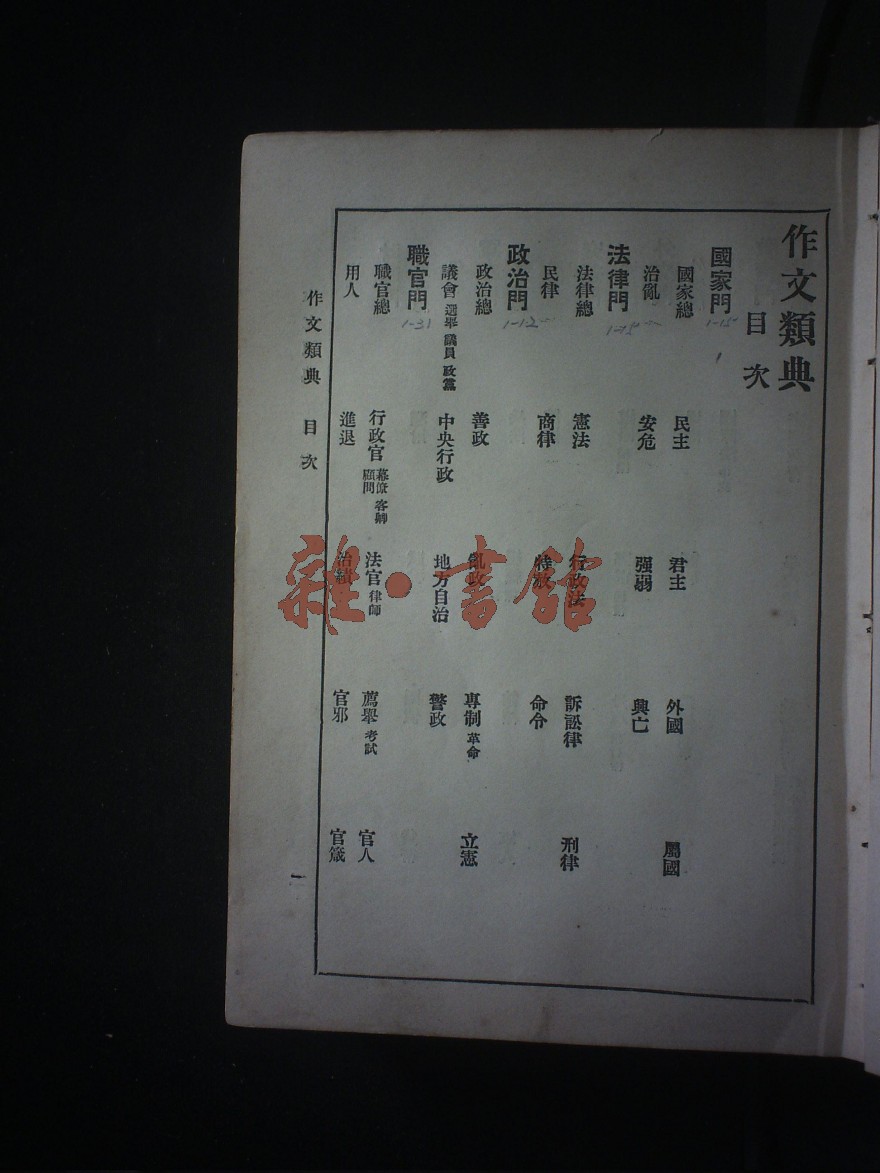 作文類典
目次
國家門
1-15
國家總 民主 君主 外國 屬國
治亂 安危 强弱 興亡
法律門
1-15
法律總 憲法 行政法 訴訟律 刑律
民律 商律 特赦 命令
政治門
1-12
政治總 善政 亂政 專制 革命 立憲
議會 選舉 議員 政黨 中央行政 地方自治 警政
職官門
1-31
職官總 行政官 幕僚 顧問 客卿 法官 律師 薦舉 考試 官人
用人 進退 治績 官邪 官箴
作文類典 目次
一
雜·書館